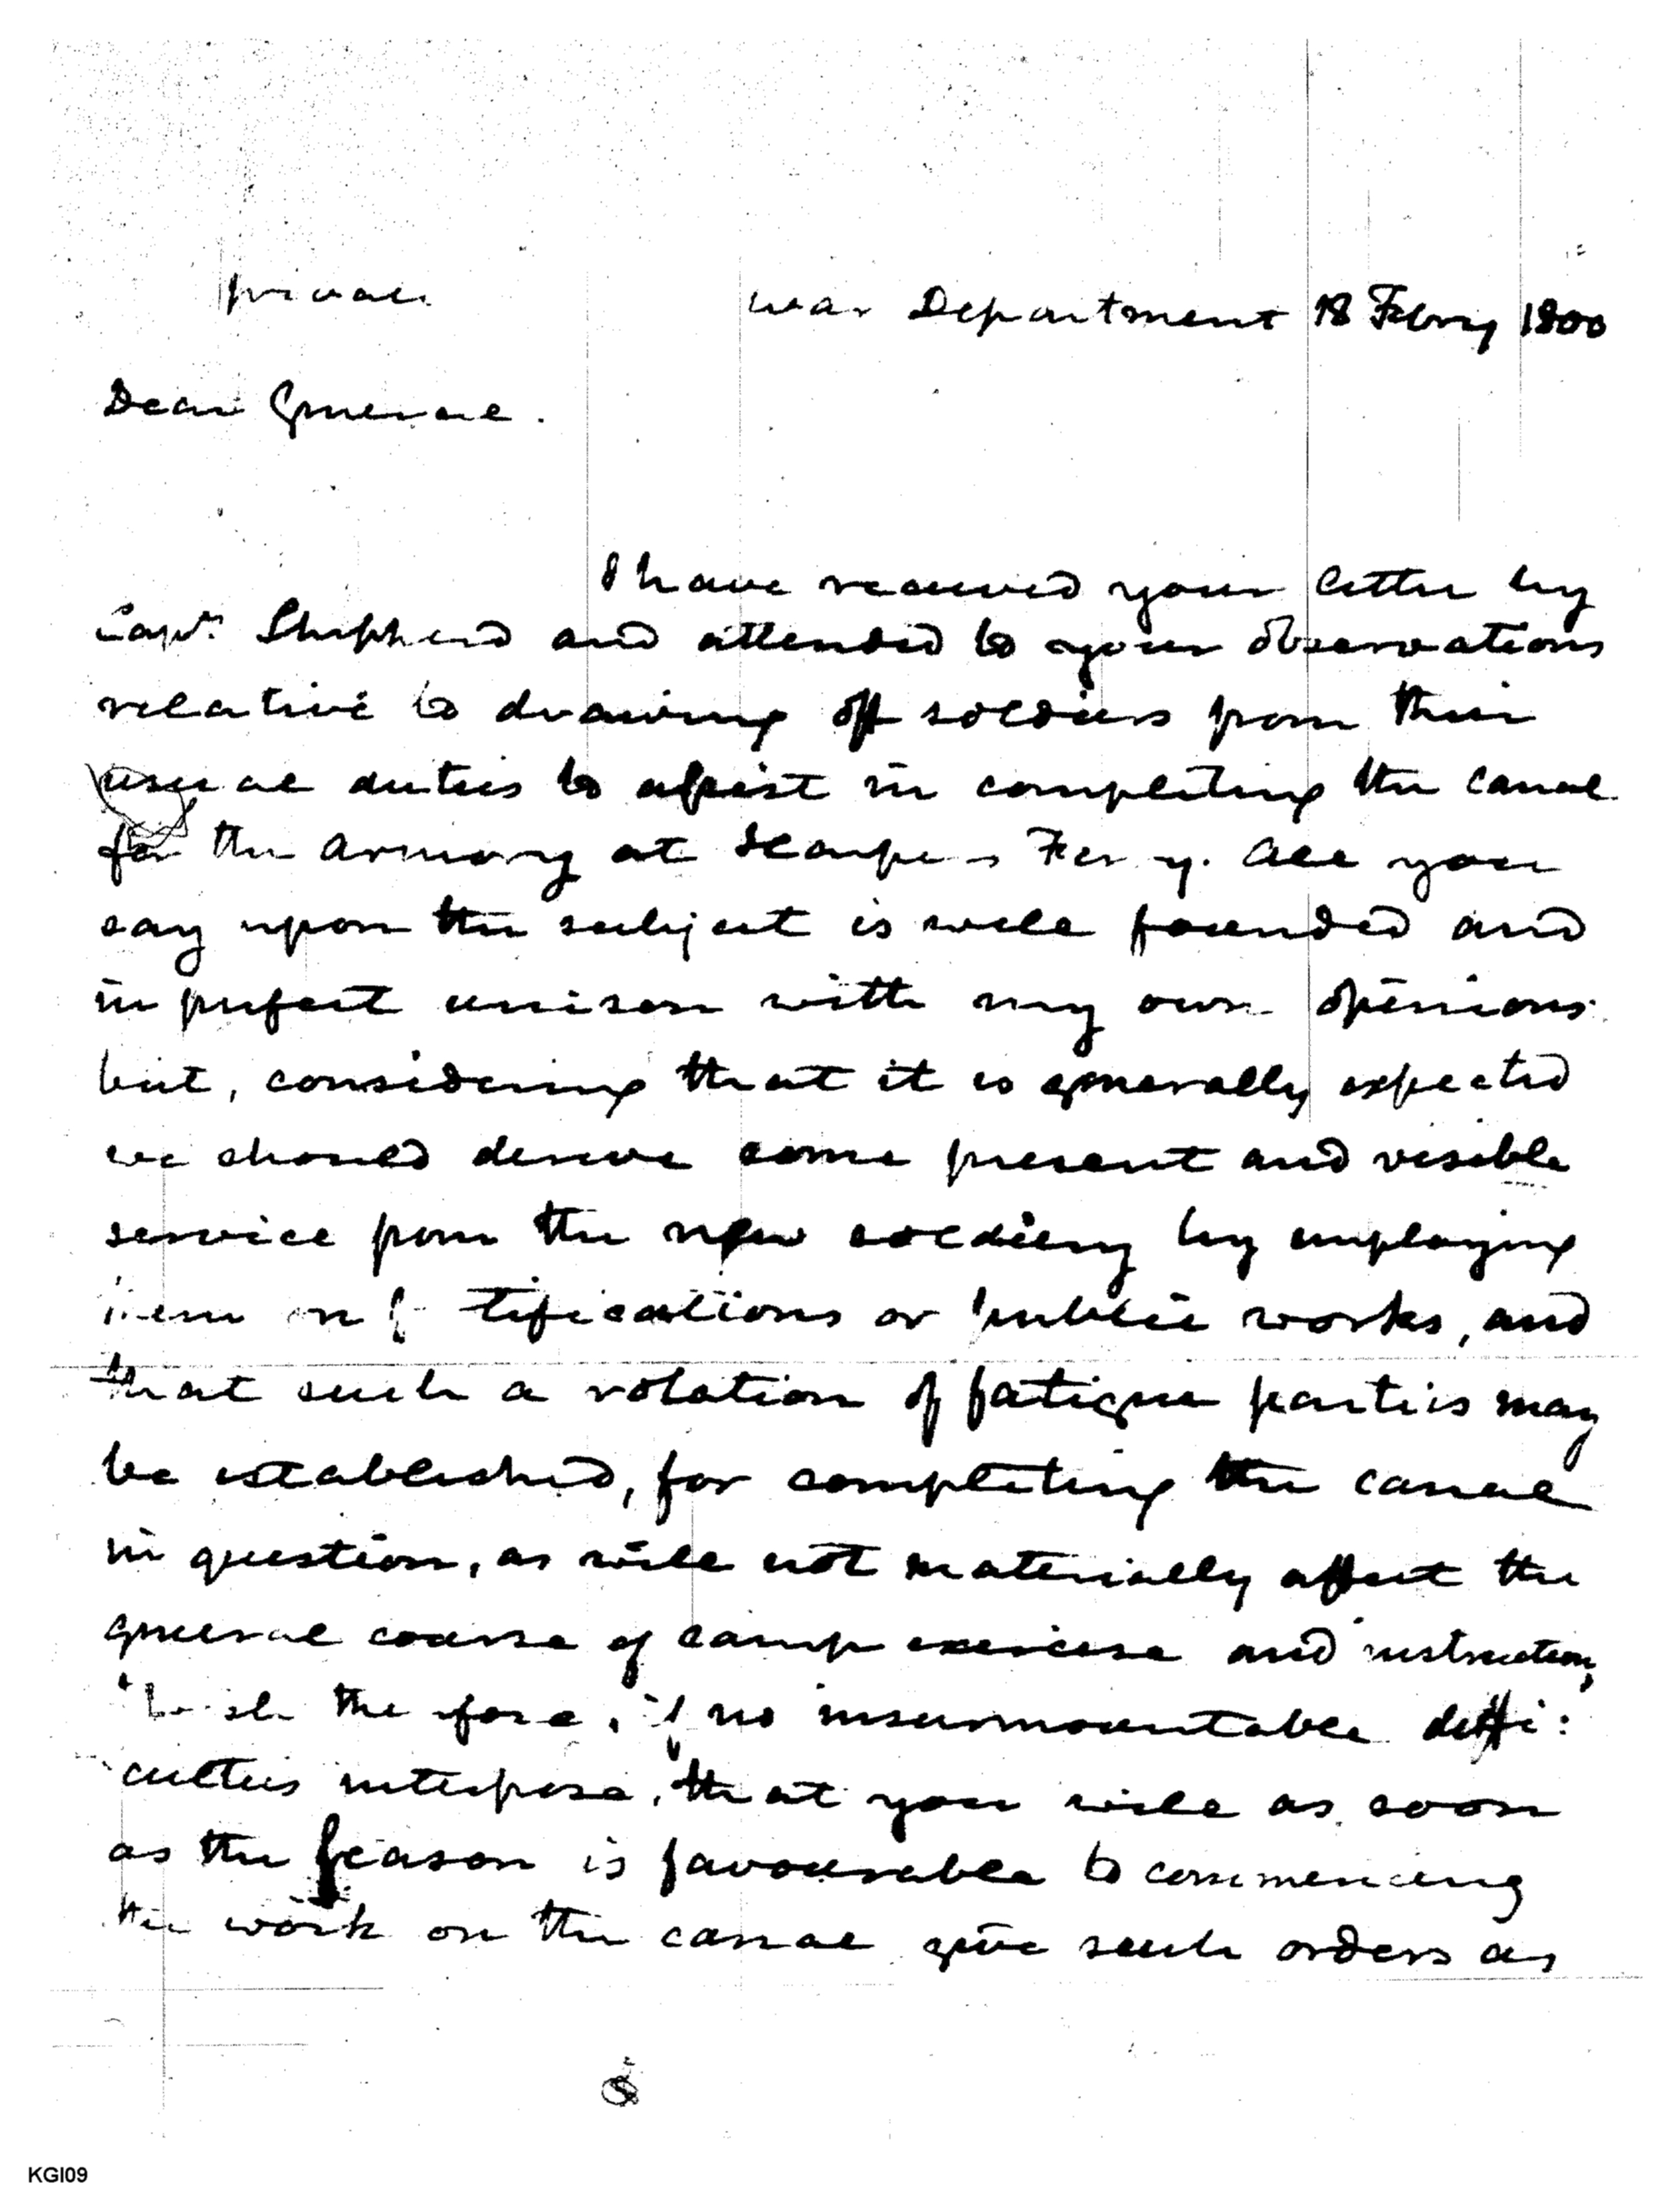 private
War Department 18 Febry 1800
Dear General.
I have received your letter by
Capt. Shepherd and attended to your observations
relative to drawing off soldiers from their
usual duties to assist in completing the canal
for the Armory at Harpers Ferry. All you
say upon the subject is well founded and
in perfect unison with my own opinions.
but, considering that it is generally expected
we should derive some present and visible
service from the new soldiery by employing
them on f tifications or public works, and
that such a rotation of fatigue parties may
be established, for completing the canal
in question, as will not materially affect the
general course of camp exercise and instruction,
wish the efore, if no insurmountable diffi:
culties interpose, that you will as soon
as the season is favourable to commencing
the work on the canal give such orders as
KGI09